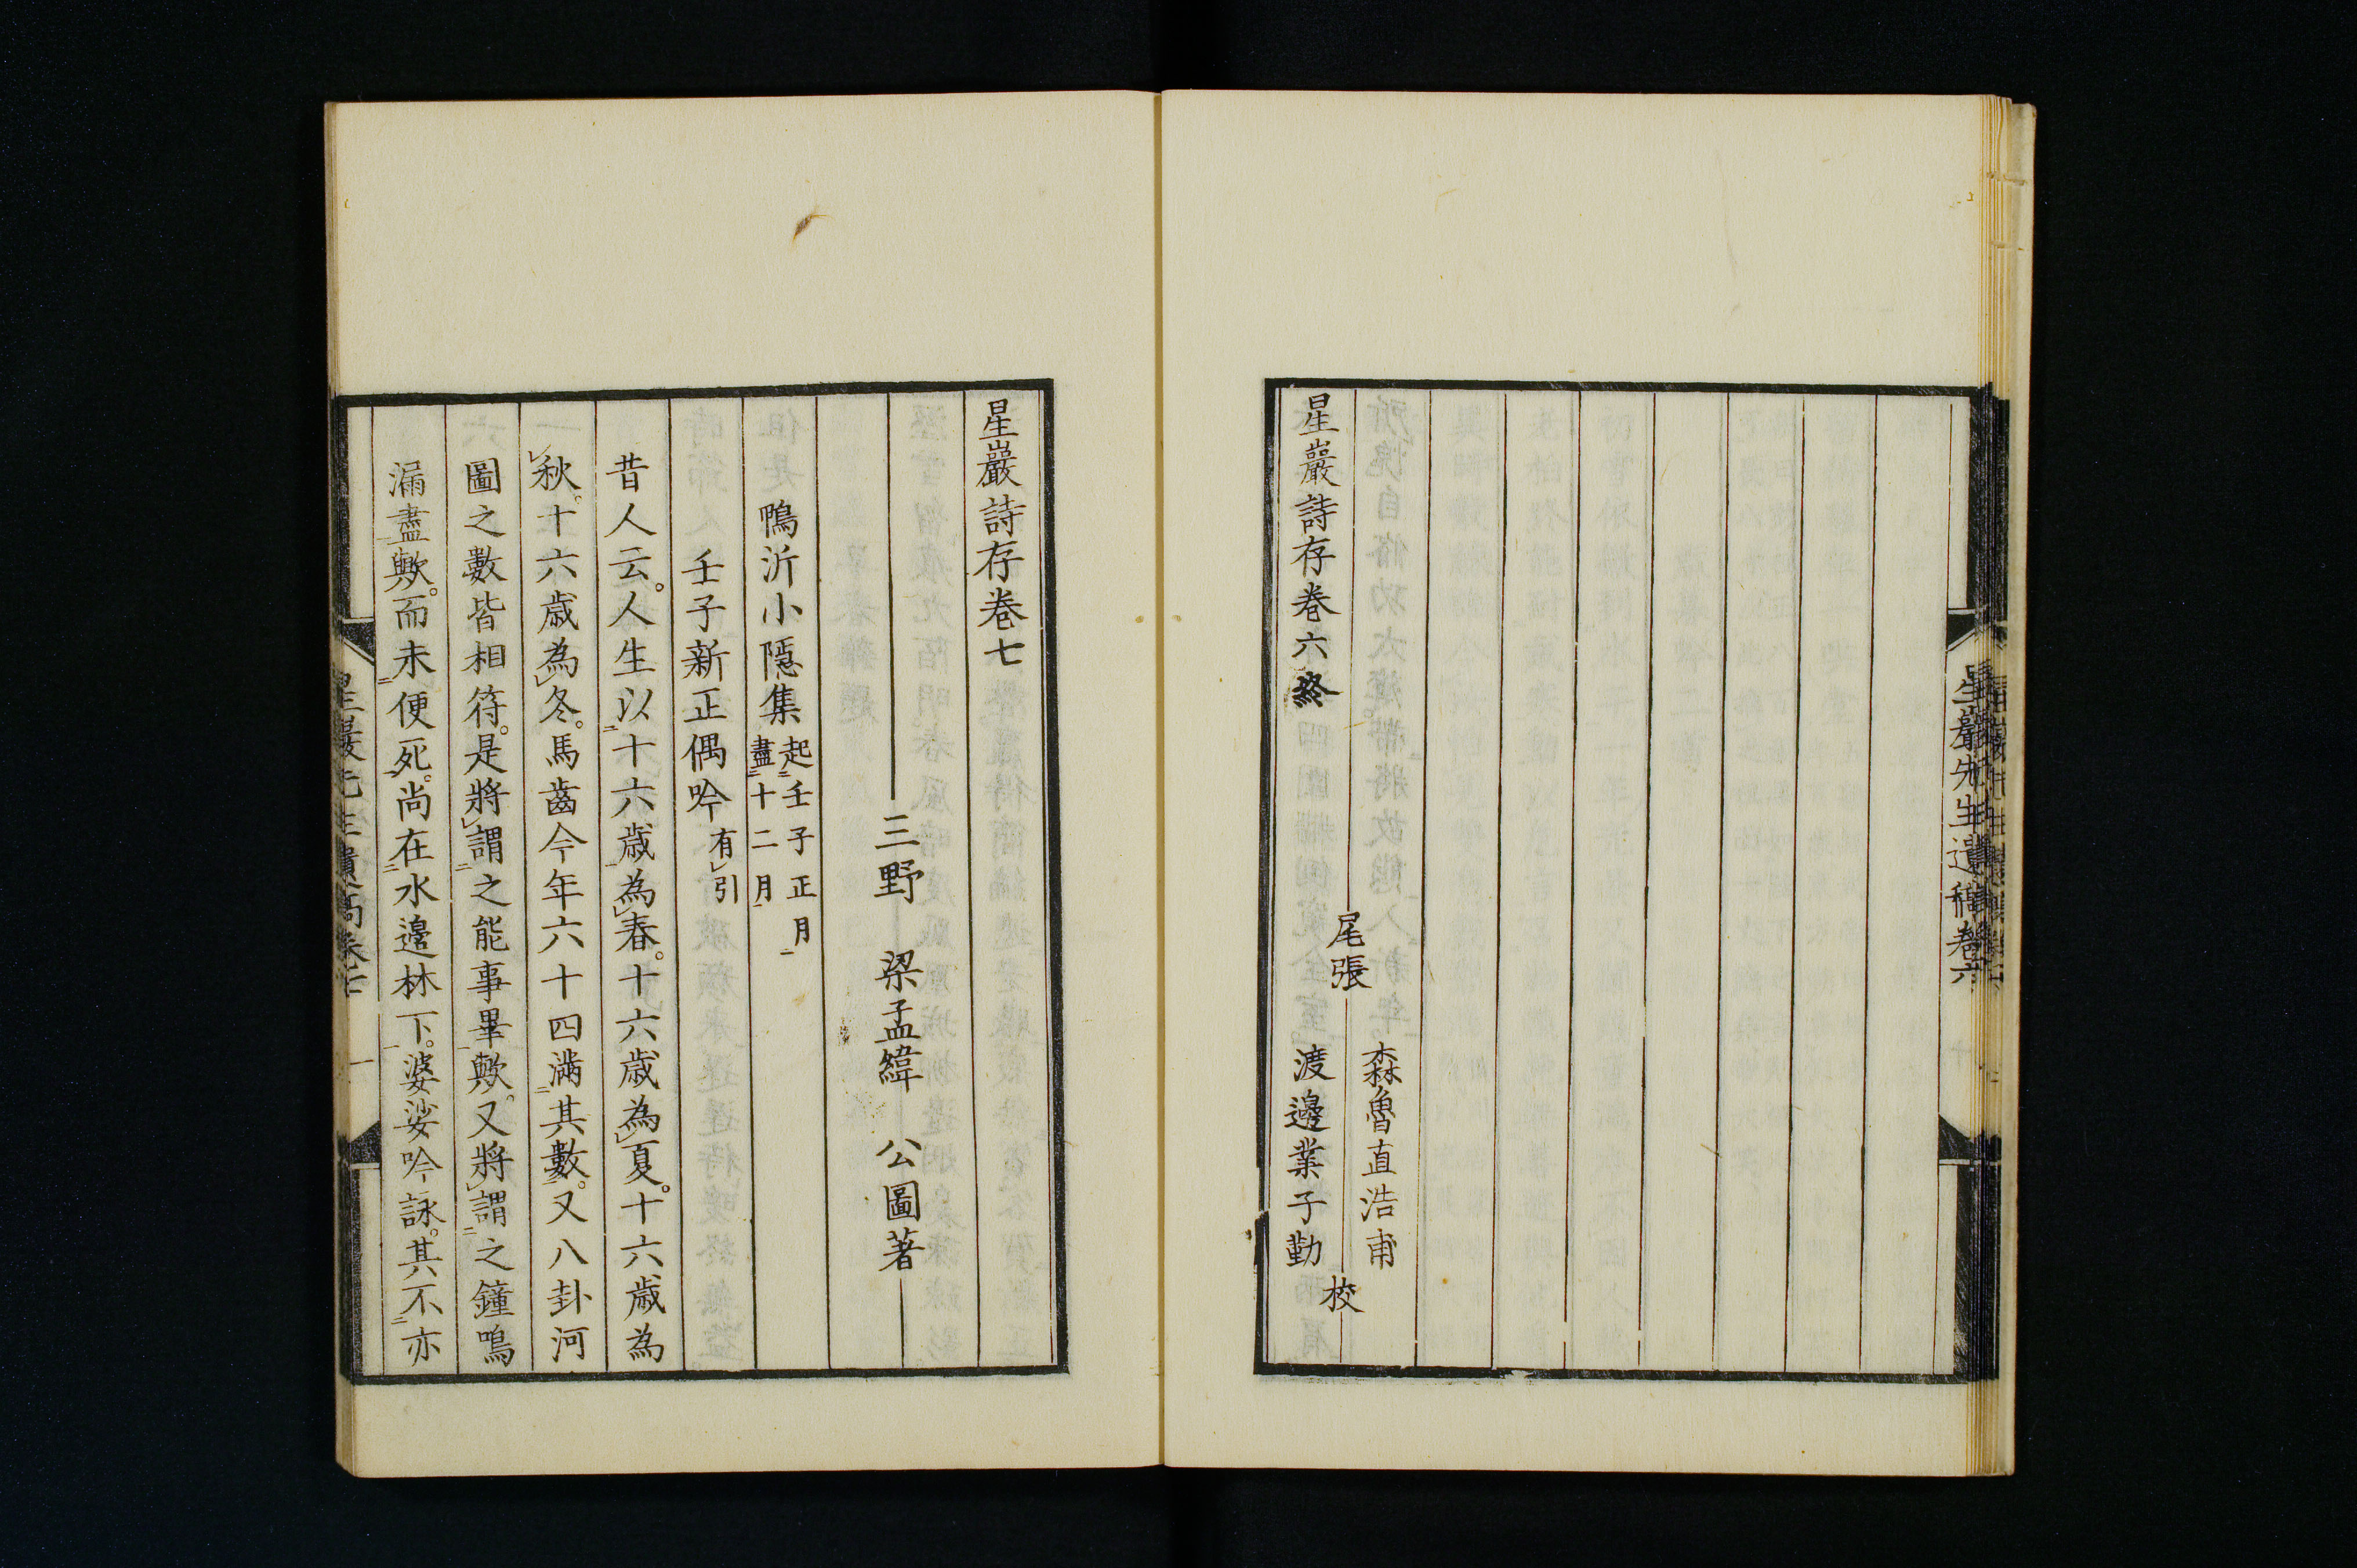 星巖先生遺稿卷六
尾張
森魯直浩甫
渡邊業子勤
校
星巖詩存卷六終
星巖詩存卷七
三野 梁孟緯 公圖著
鴨沂小隱集
起二壬子正月一
盡二十二月一
壬子新正偶吟
有レ引
昔人云。人生以二十六歳一為レ春。十六歳為レ夏。十六歳為
レ秋。十六歳為レ冬。馬齒今年六十四滿二其數一。又八卦河
圖之數皆相符。是將レ謂二之能事畢一歟。又將レ謂二之鐘鳴
漏盡一歟。而未二便死一。尚在二水邊林下一。婆娑吟詠。其不二亦
一